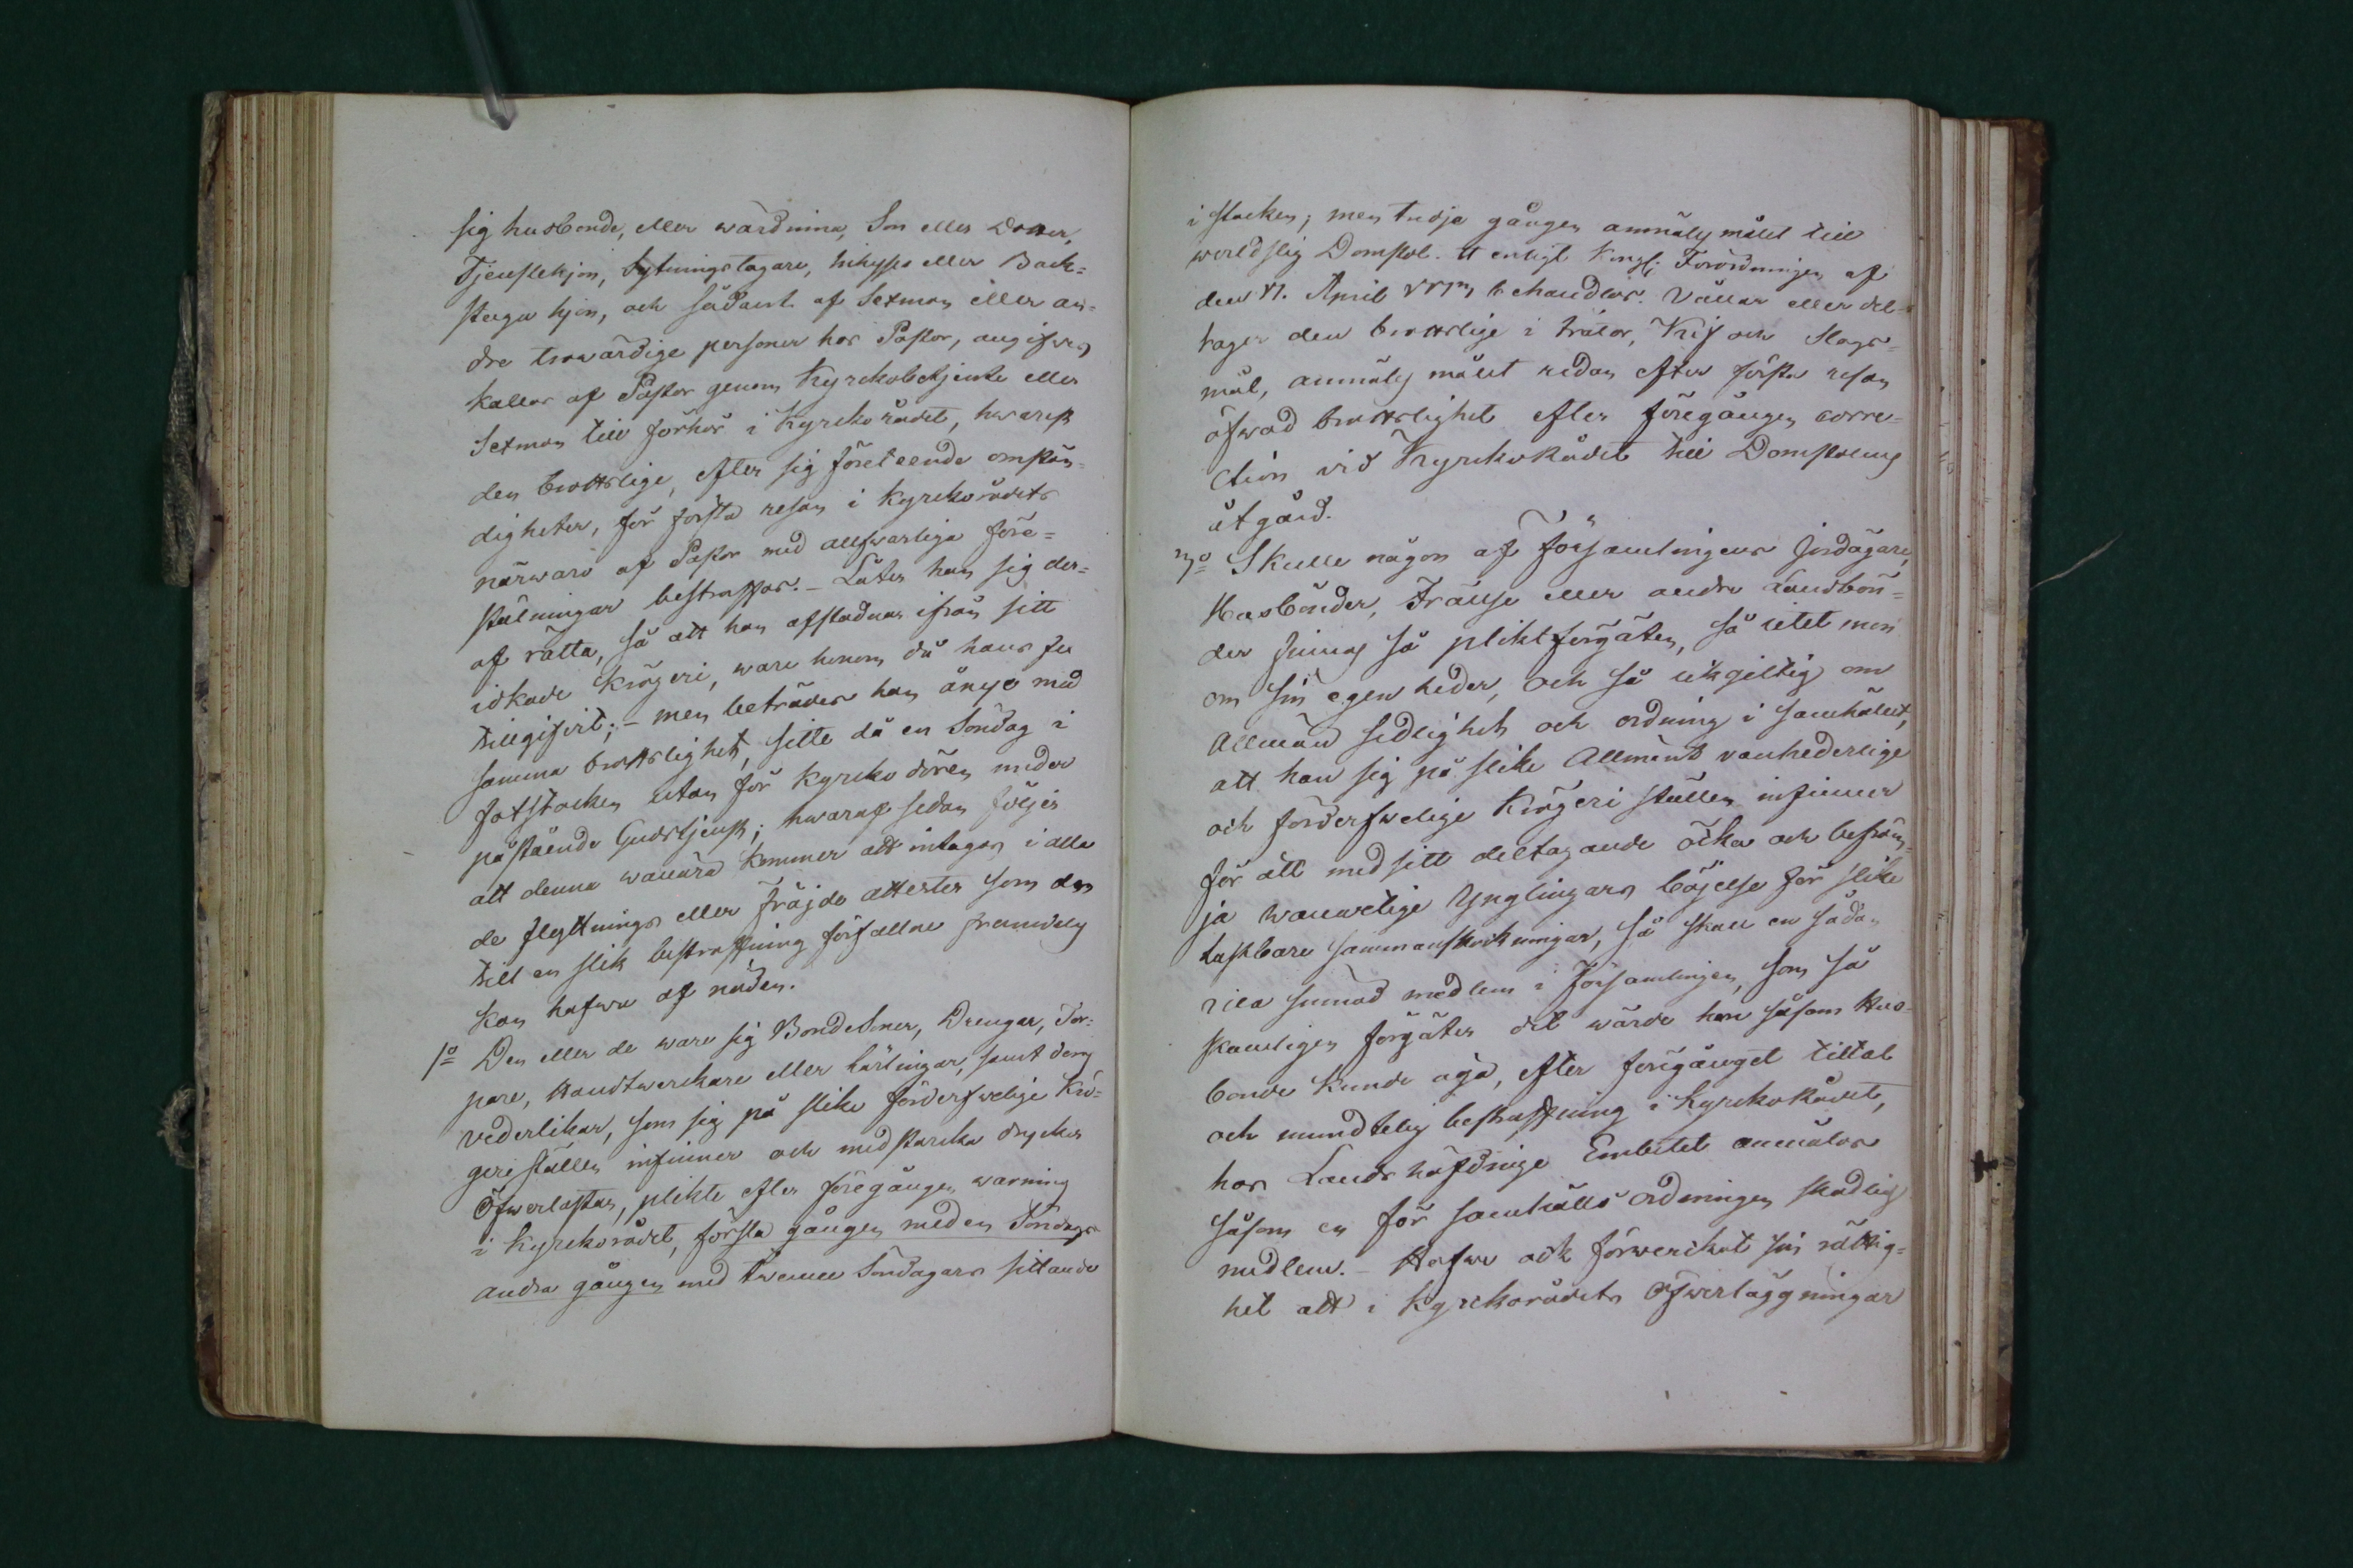 sig husbonde, eller wärdinna, Son eller Dotter,
Tjenstehjon, Sytningstagare, Inhyses eller Back=
stugu hjon, och sådant af Sexman eller an=
dra trowärdige personer hos Pastor, angifwes
kallas af Pastor genom Kyrckobetjente eller
Sexman till förhör i Kyrckorådet, hwarest
den brottslige, efter sig företeende omstän=
digheter, för första resan i Kyrckorådets
närwaro af Pastor med allfwarliga före=
stälningar bestraffas. – Låter han sig der=
af rätta, så att han afstadnar ifrån sitt
idkade Krögeri, ware honom då hans fel
tillgifvit; – men beträdes han ånyo med
samma brottslighet, sitte då en Söndag i
fotstocken utan för Kyrcko dören under
påstående Gudstjenst; hwaraf sedan följer
att denna wanära kommer att intagas i alla
de flyttnings eller fräjde attester som den
till en slik bestraffning förfallne framdeles
kan hafwa af nöden.
1o Den eller de ware sig Bondesöner, Drengar, Tor=
pare, Handtwerckare eller Lärlingar, samt deras
vederlikar, som sig på slike förderfwelige Krö=
geriställen infinner och med starcka drycker
öfwerlastar, plikte efter föregången warning
i Kyrckorådet, första gången med en Söndags
andra gången med twenne Söndagars sittande
i stocken; men tredje gången anmäles målet till
werldslig Domstol att enligt Kongl: Förordningen af
den April behandlas. Vållar eller del=
tager den brottslige i trätor, Kif och Slags=
mål, anmäles målet redan efter första resan
öfwad brottslighet efter föregången corre=
ction vid Kyrckorådet till Domstolens
åtgärd.
Skulle någon af Församlingens Jordägare,
Husbönder, Frälse eller andra Landbön=
der finnas så pliktförgäten, så litet mon
om sin egen heder, och så likgiltig om
Allmän sedlighet och ordning i samhället,
att han sig på slike Allment vanhederlige
och förderfwelige Krögeri ställen infinner
för att med sitt deltagande öcka och befräm=
ja wanartige Ynglingars böjelse för slike
lastbare sammanskockningar, så skall en sådan
medlem i Församlingen, som så
skamligen förgäter det wärde han såsom Hus=
bonde kunde äga, efter föregånget tilltal
och mundtelig bestraffning i Kyrckorådet,
hos Landshöfdinge Embetet anmälas
såsom en för samhälls ordningen skadlig
medlem. – Hafwe ock förwerckat sin rättig=
het att i Kyrckorådets öfwerläggningar